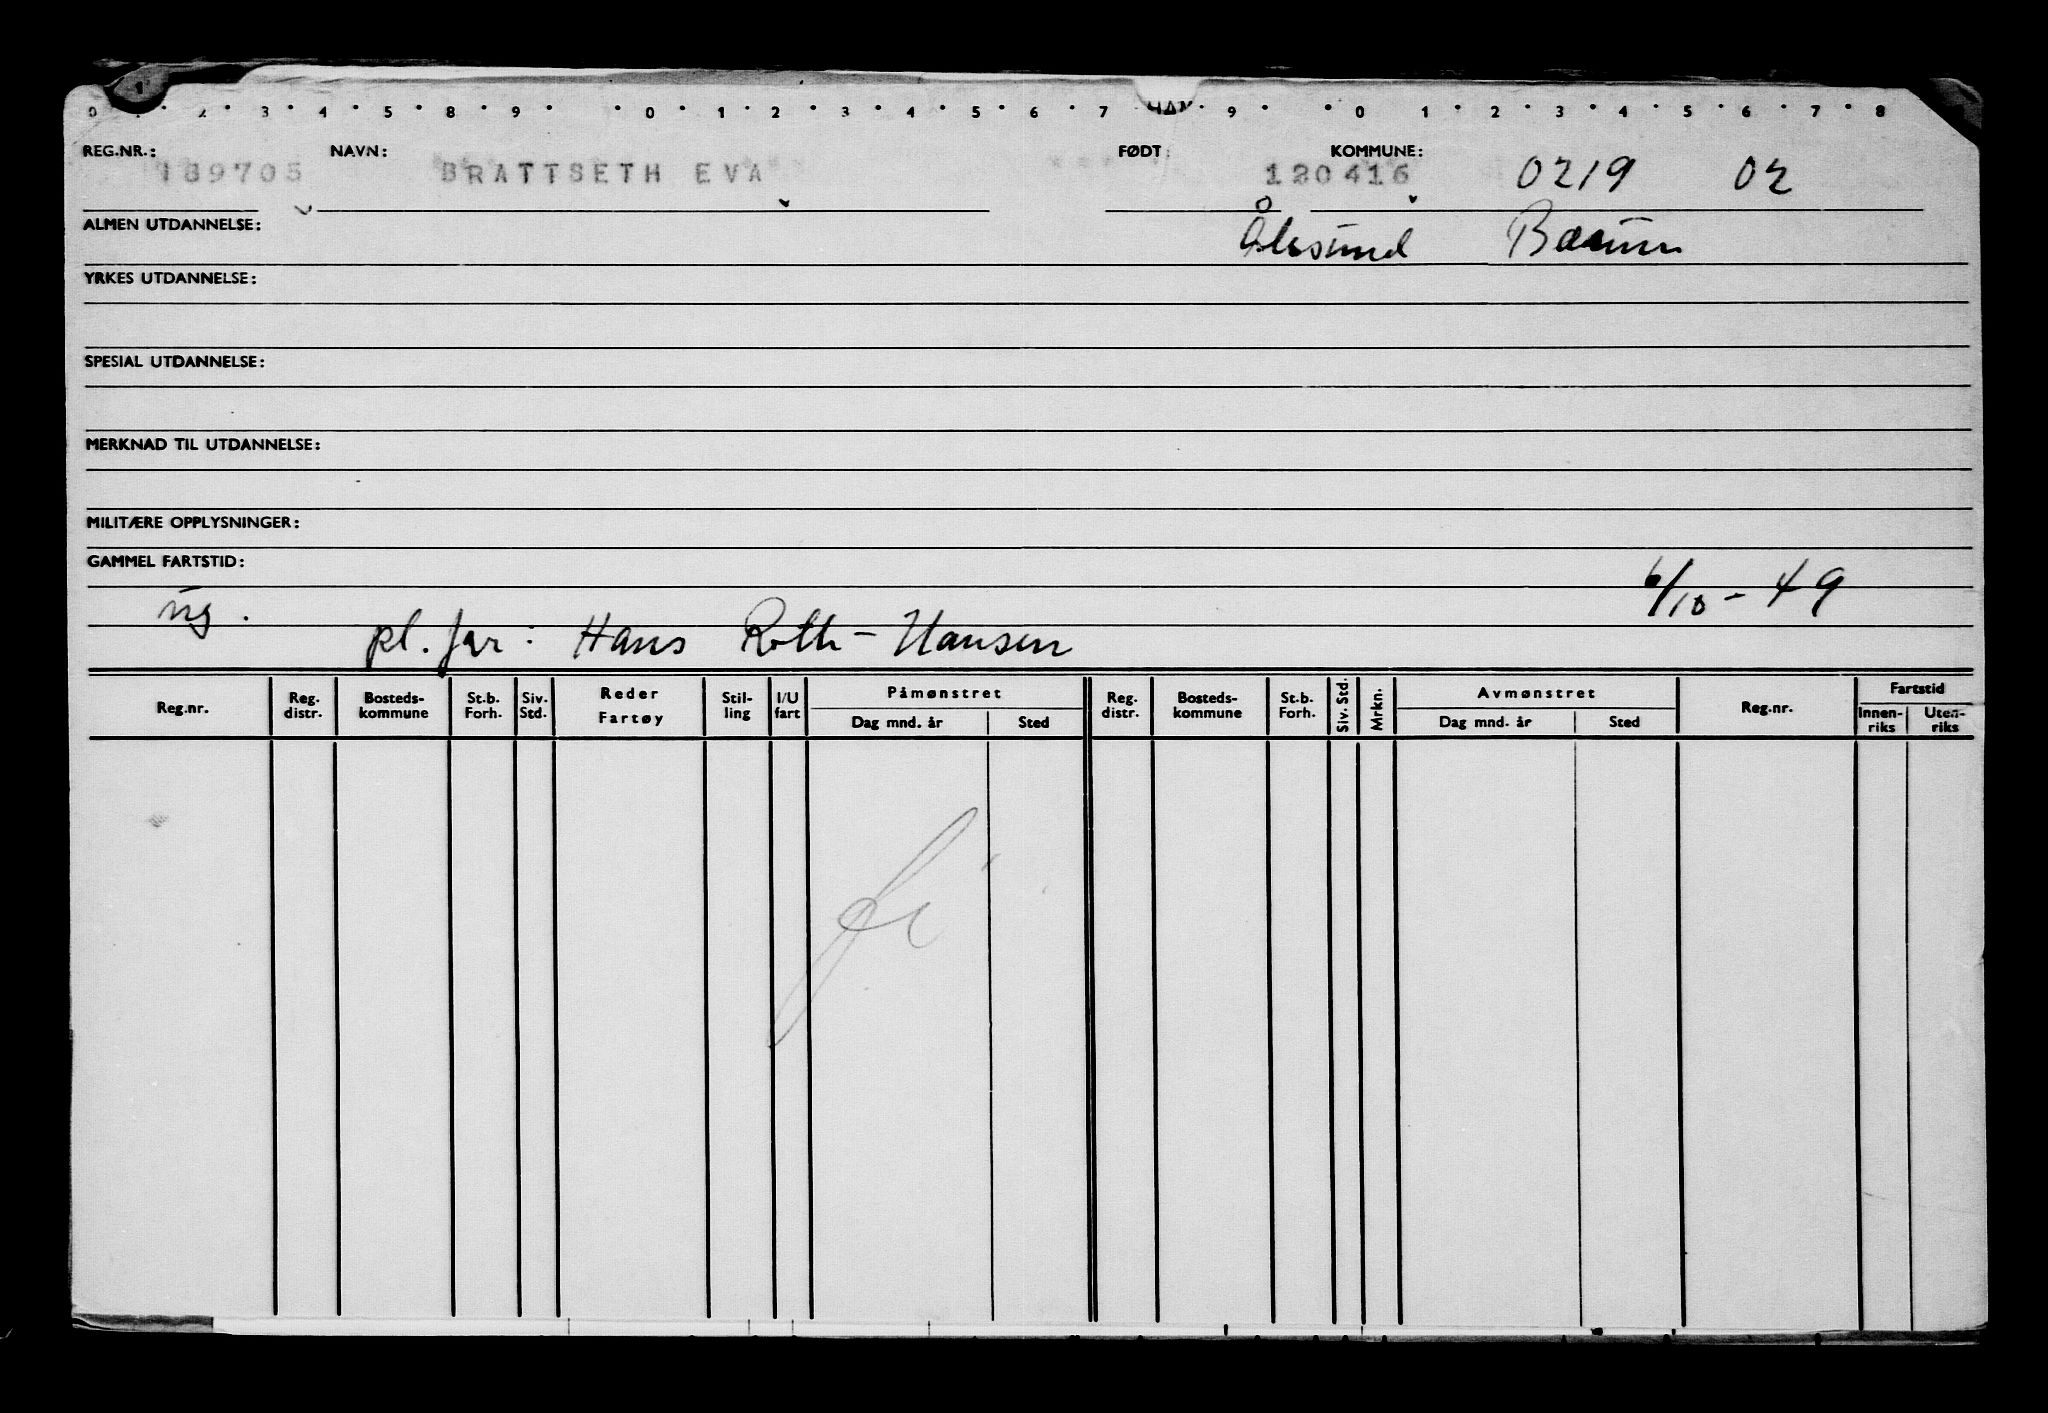 1
0 2 3 4 5 8 9 0 1 2 3 4 5 6 7 HAN 9 0 1 2 3 4 5 6 7 8
REG.NR.: NAVN: FØDT KOMMUNE:
189705 BRATTSETH EVA 120416 0219 02
ALMEN UTDANNELSE: Ålesund Bærum
YRKES UTDANNELSE:
SPESIAL UTDANNELSE:
MERKNAD TIL UTDANNELSE:
MILITÆRE OPPLYSNINGER:
GAMMEL FARTSTID:
ug. 6/10-49
pl. far: Hans Roth-Hansen
Reg.nr. Reg. distr. Bosteds-kommune St.b. Forh. Siv. Std. Reder Fartøy Stil-ling I/U fart Påmønstret Dag mnd. år Sted Reg. distr. Bosteds-kommune St.b. Forh. Siv. Std. Mrkn. Avmønstret Dag mnd. år Sted Reg.nr. Fartstid Innen-riks Uten-riks